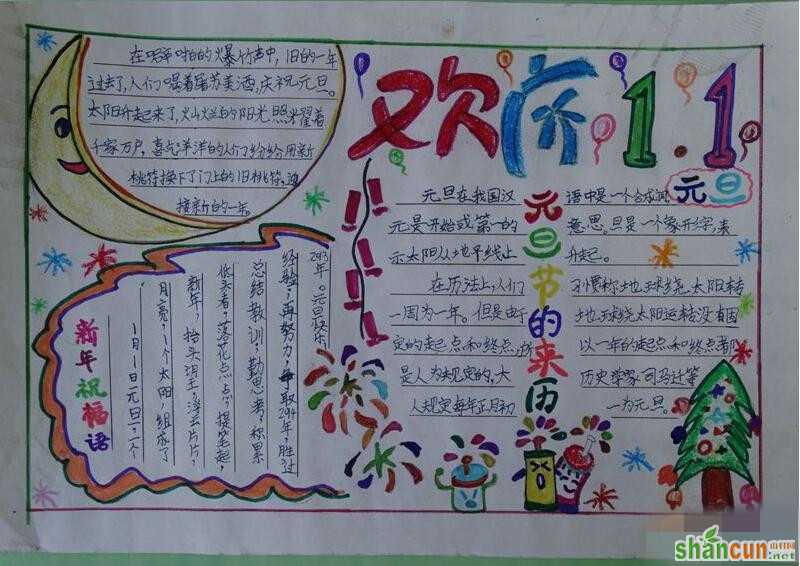 欢庆1.1
元旦
在噼啪的爆竹声中,旧的一年
过去了,人们喝着屠苏美酒,庆祝元旦。
太阳升起来了,火灿烂的阳光照耀着
千家万户,喜气洋洋的人们纷纷用新
桃符换下了门上的旧桃符,迎
接新的一年。
元旦节的来历
元旦在我国汉
元是开始或第一的
示太阳从地平线上
在历法上,人们
一周为一年。但是由于
定的起点和终点,
是人为规定的,大
人规定每年正月初
语中是一个合成词
意思。旦是一个象形字,表
升起。
习惯称地球绕太阳转
地球绕太阳运转没有固
以一年的起点和终点都
历史学家司马迁等
一为元旦。
新年祝福语
1月1日元旦:一个
月亮,1个太阳,组成了
新年,抬头消王,浮云片片,
低头看,落花点点,提笔起,
总结教训,勤思考,积累
经验,再努力,争取294年,胜过
293年。元旦快乐
shancun
山村网
.net